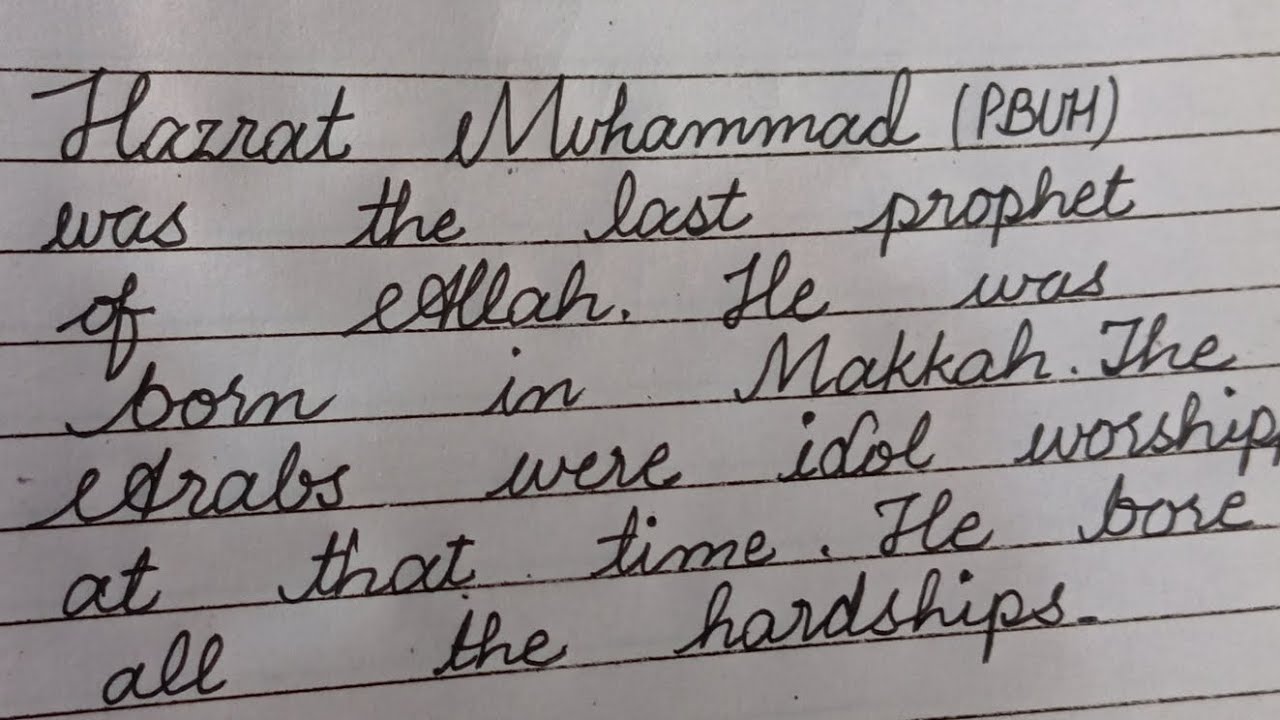 Hazrat Muhammad (PBUH)
was the last prophet
of Allah. He was
born in Makkah. The
Arabs were idol worship
at that time. He bore
all the hardships.